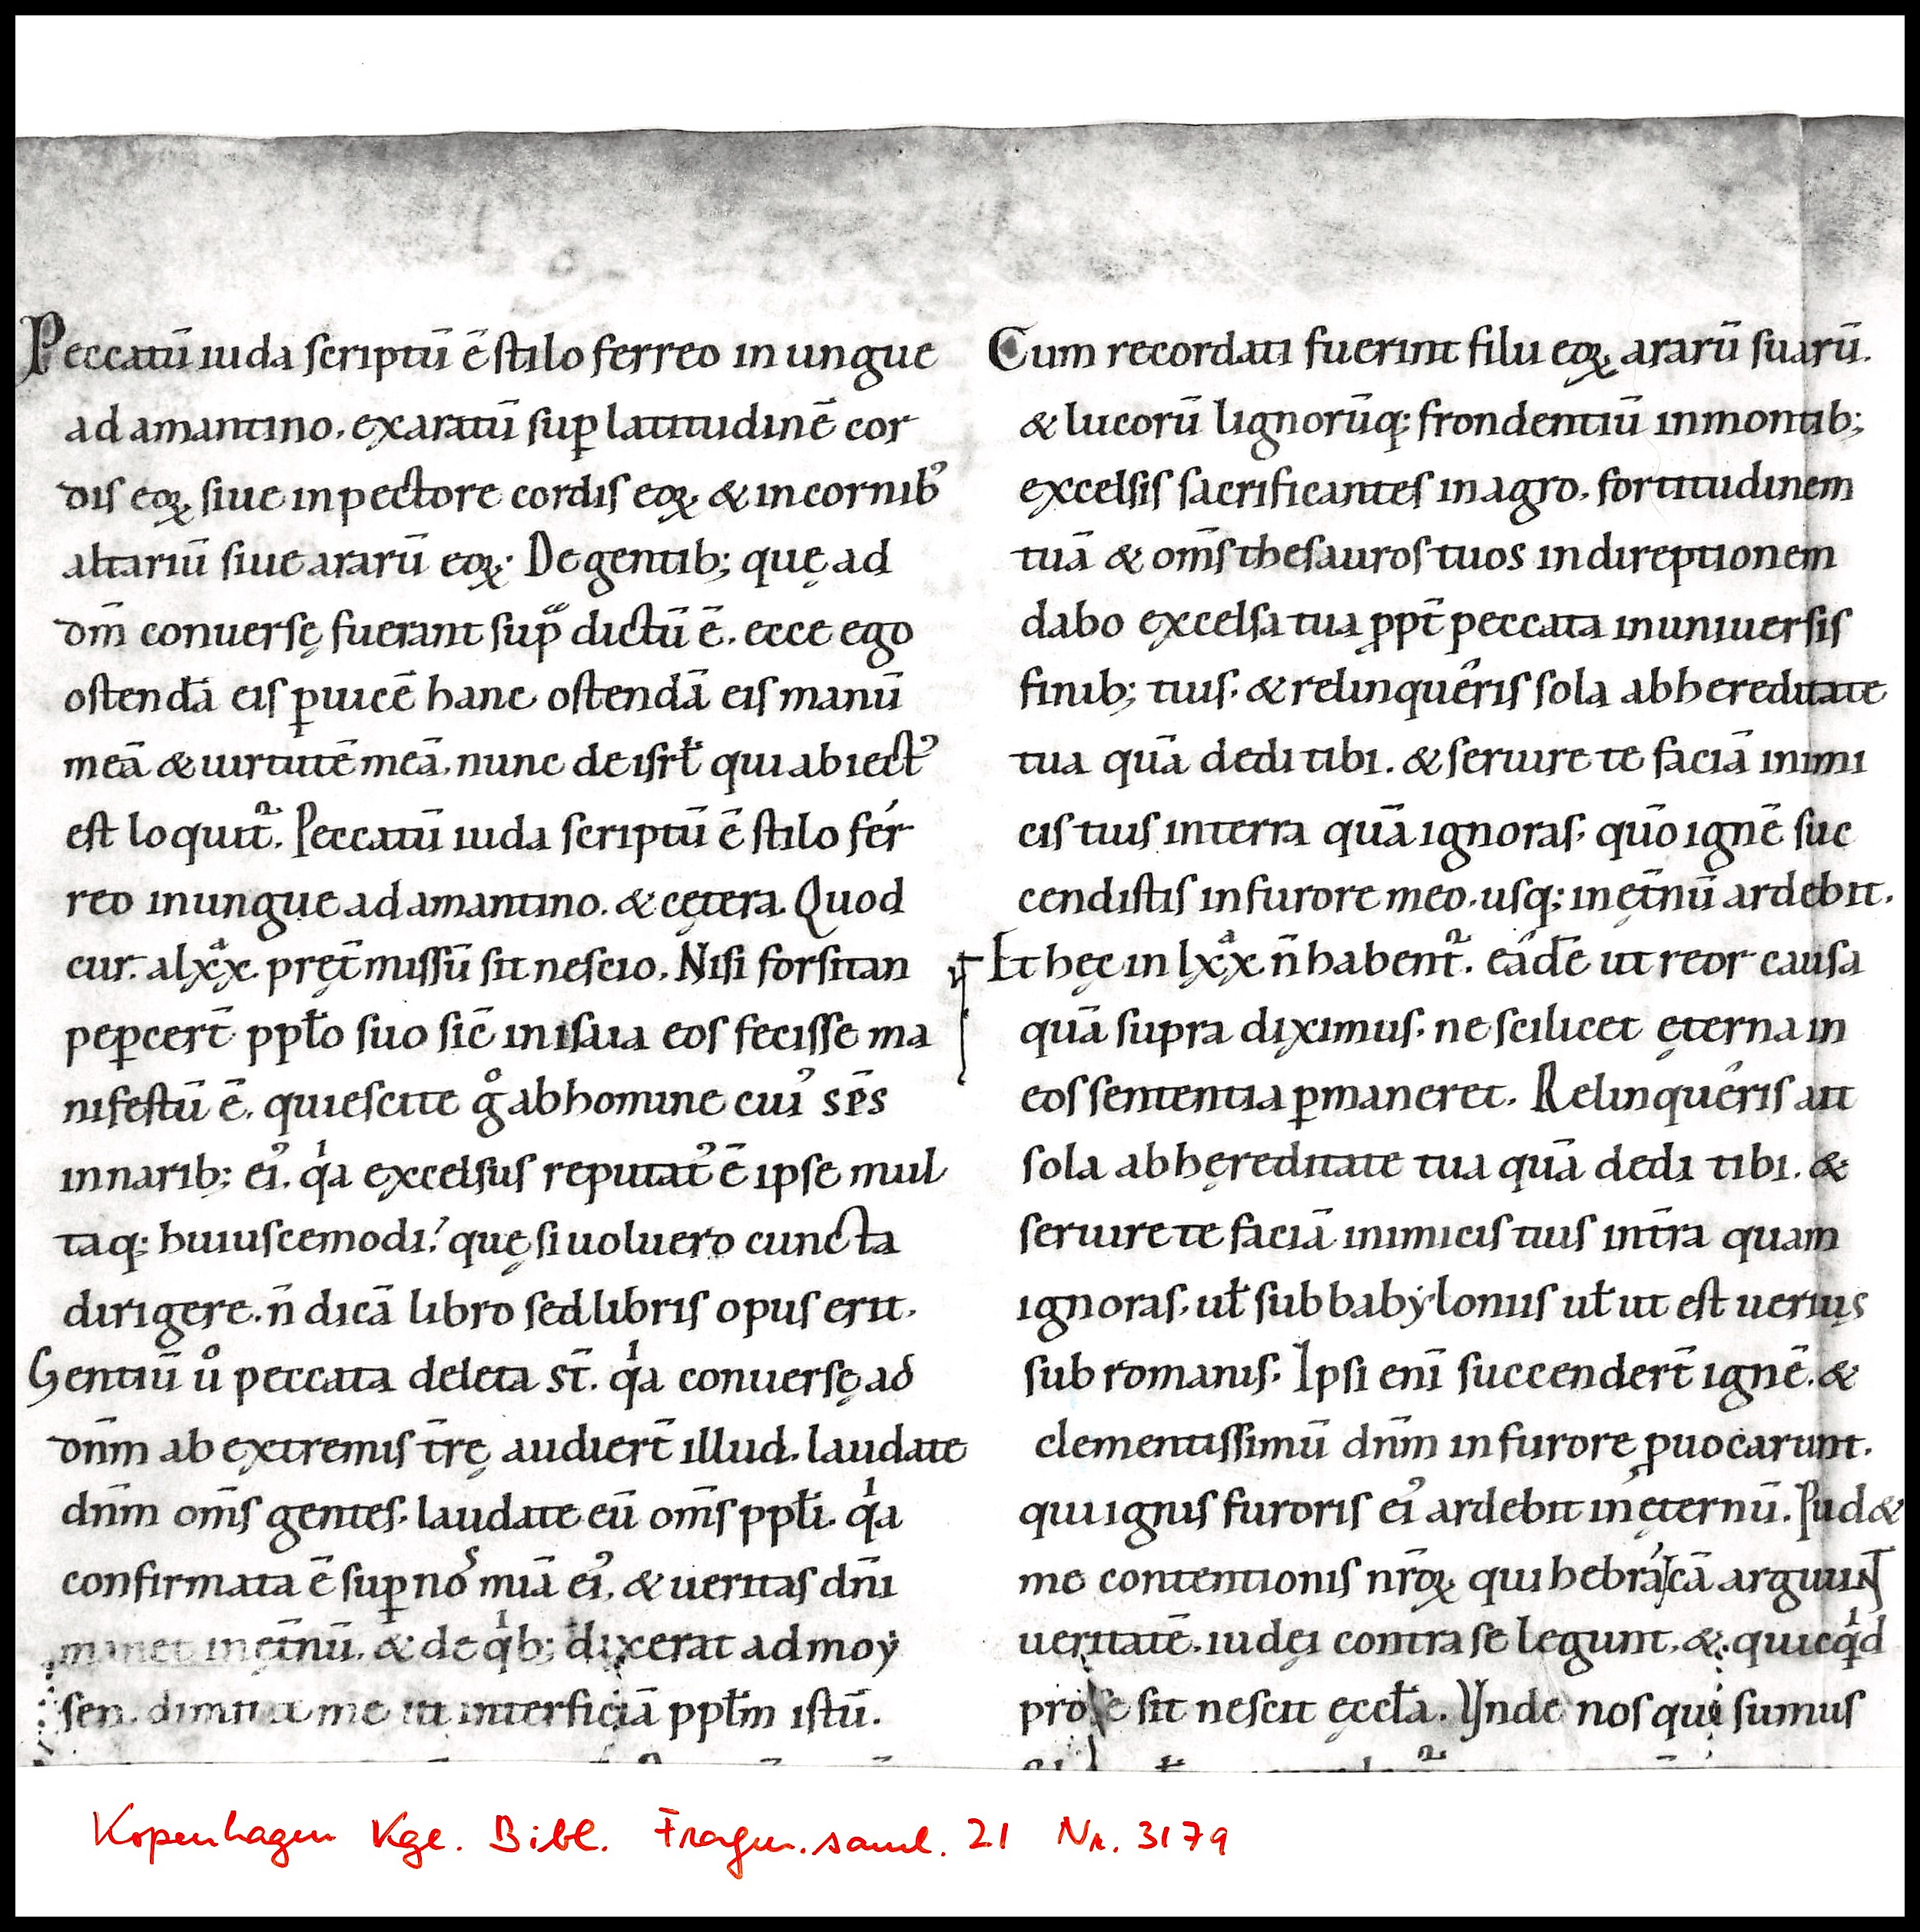 Peccatū iuda scriptū ē stilo ferreo in ungue
adamantino. exaratū sup̱ latitudinē cor
dis eoꝝ siue in pectore cordis eoꝝ & in cornib᾿
altariū siue ararū eoꝝ. De gentib; quę ad
dm̄ conuersę fuerant sup̱ͣ dictū ē. ecce ego
ostendā eis ꝑuicē hanc ostendā eis manū
meā & uirtutē meā. nunc de isrł qui abiect᾿
est loquit᷑. Peccatū iuda scriptū ē stilo fer
reo in ungue adamantino. & cętera. Quod
cur. a lxͣx. pręt̄missū sit nescio. Nisi forsitan
peꝑcert̄ ppło suo sic̄ in isaia eos fecisse ma
nifestū ē. quiescite gͦ ab homine cui᾿ sp̄s
in narib; ei᾿. qͥa excelsus reputat᾿ ē ipse mul
taq; huiuscemodi. quę si uoluero cuncta
dirigere. n̄ dicā libro sed libris opus erit.
Gentiū uͦ peccata deleta st̄. qͥa conuersę ad
dnm̄ ab extremis tr̄ę audiert̄ illud. laudate
dnm̄ om̄s gentes. laudate eū om̄s ppłi. qͥa
confirmata ē suꝑ noˢ mīa ei᾿. & ueritas dn̄i
manet in ęt̄nū. & de qͥb; dixerat ad moẏ
sen. dimitte me ut interficiā ppłm istū.
Cum recordati fuerint filii eoꝝ ararū suarū.
& lucorū lignorūq; frondentiū in montib;
excelsis sacrificantes in agro. fortitudinem
tuā & om̄s thesauros tuos in direptionem
dabo excelsa tua ꝓpt̄ peccata in uniuersis
finib; tuis. & relinqueris sola ab hereditate
tua quā dedi tibi. & seruire te faciā inimi
cis tuis in terra quā ignoras. quō ignē suc
cendistis in furore meo. usq; in ęt̄nū ardebit.
Et hęc in lxͣx n̄ habent᷑. eādē ut reor causa
quā supra diximus. ne scilicet ęterna in
eos sententia ꝑmaneret. Relinqueris aut̄
sola ab hęreditate tua quā dedi tibi. &
seruire te faciā inimicis tuis in tr̄ra quam
ignoras. uł sub babẏloniis uł ut est uerius
sub romanis. Ipsi enī succendert̄ ignē. &
clementissimū dnm̄ in furore ꝓuocarunt.
qui ignis furoris ei᾿ ardebit in ęternū. Pud&
me contentionis nr̄oꝝ qui hebraicā arguunt
ueritatē. iudęi contra se legunt. & quicqͥd
pro se sit nescit ęccła. Unde nos qui sumus
Kopenhagen Kgl. Bibl. Fragm. saml. 21 Nr. 3179